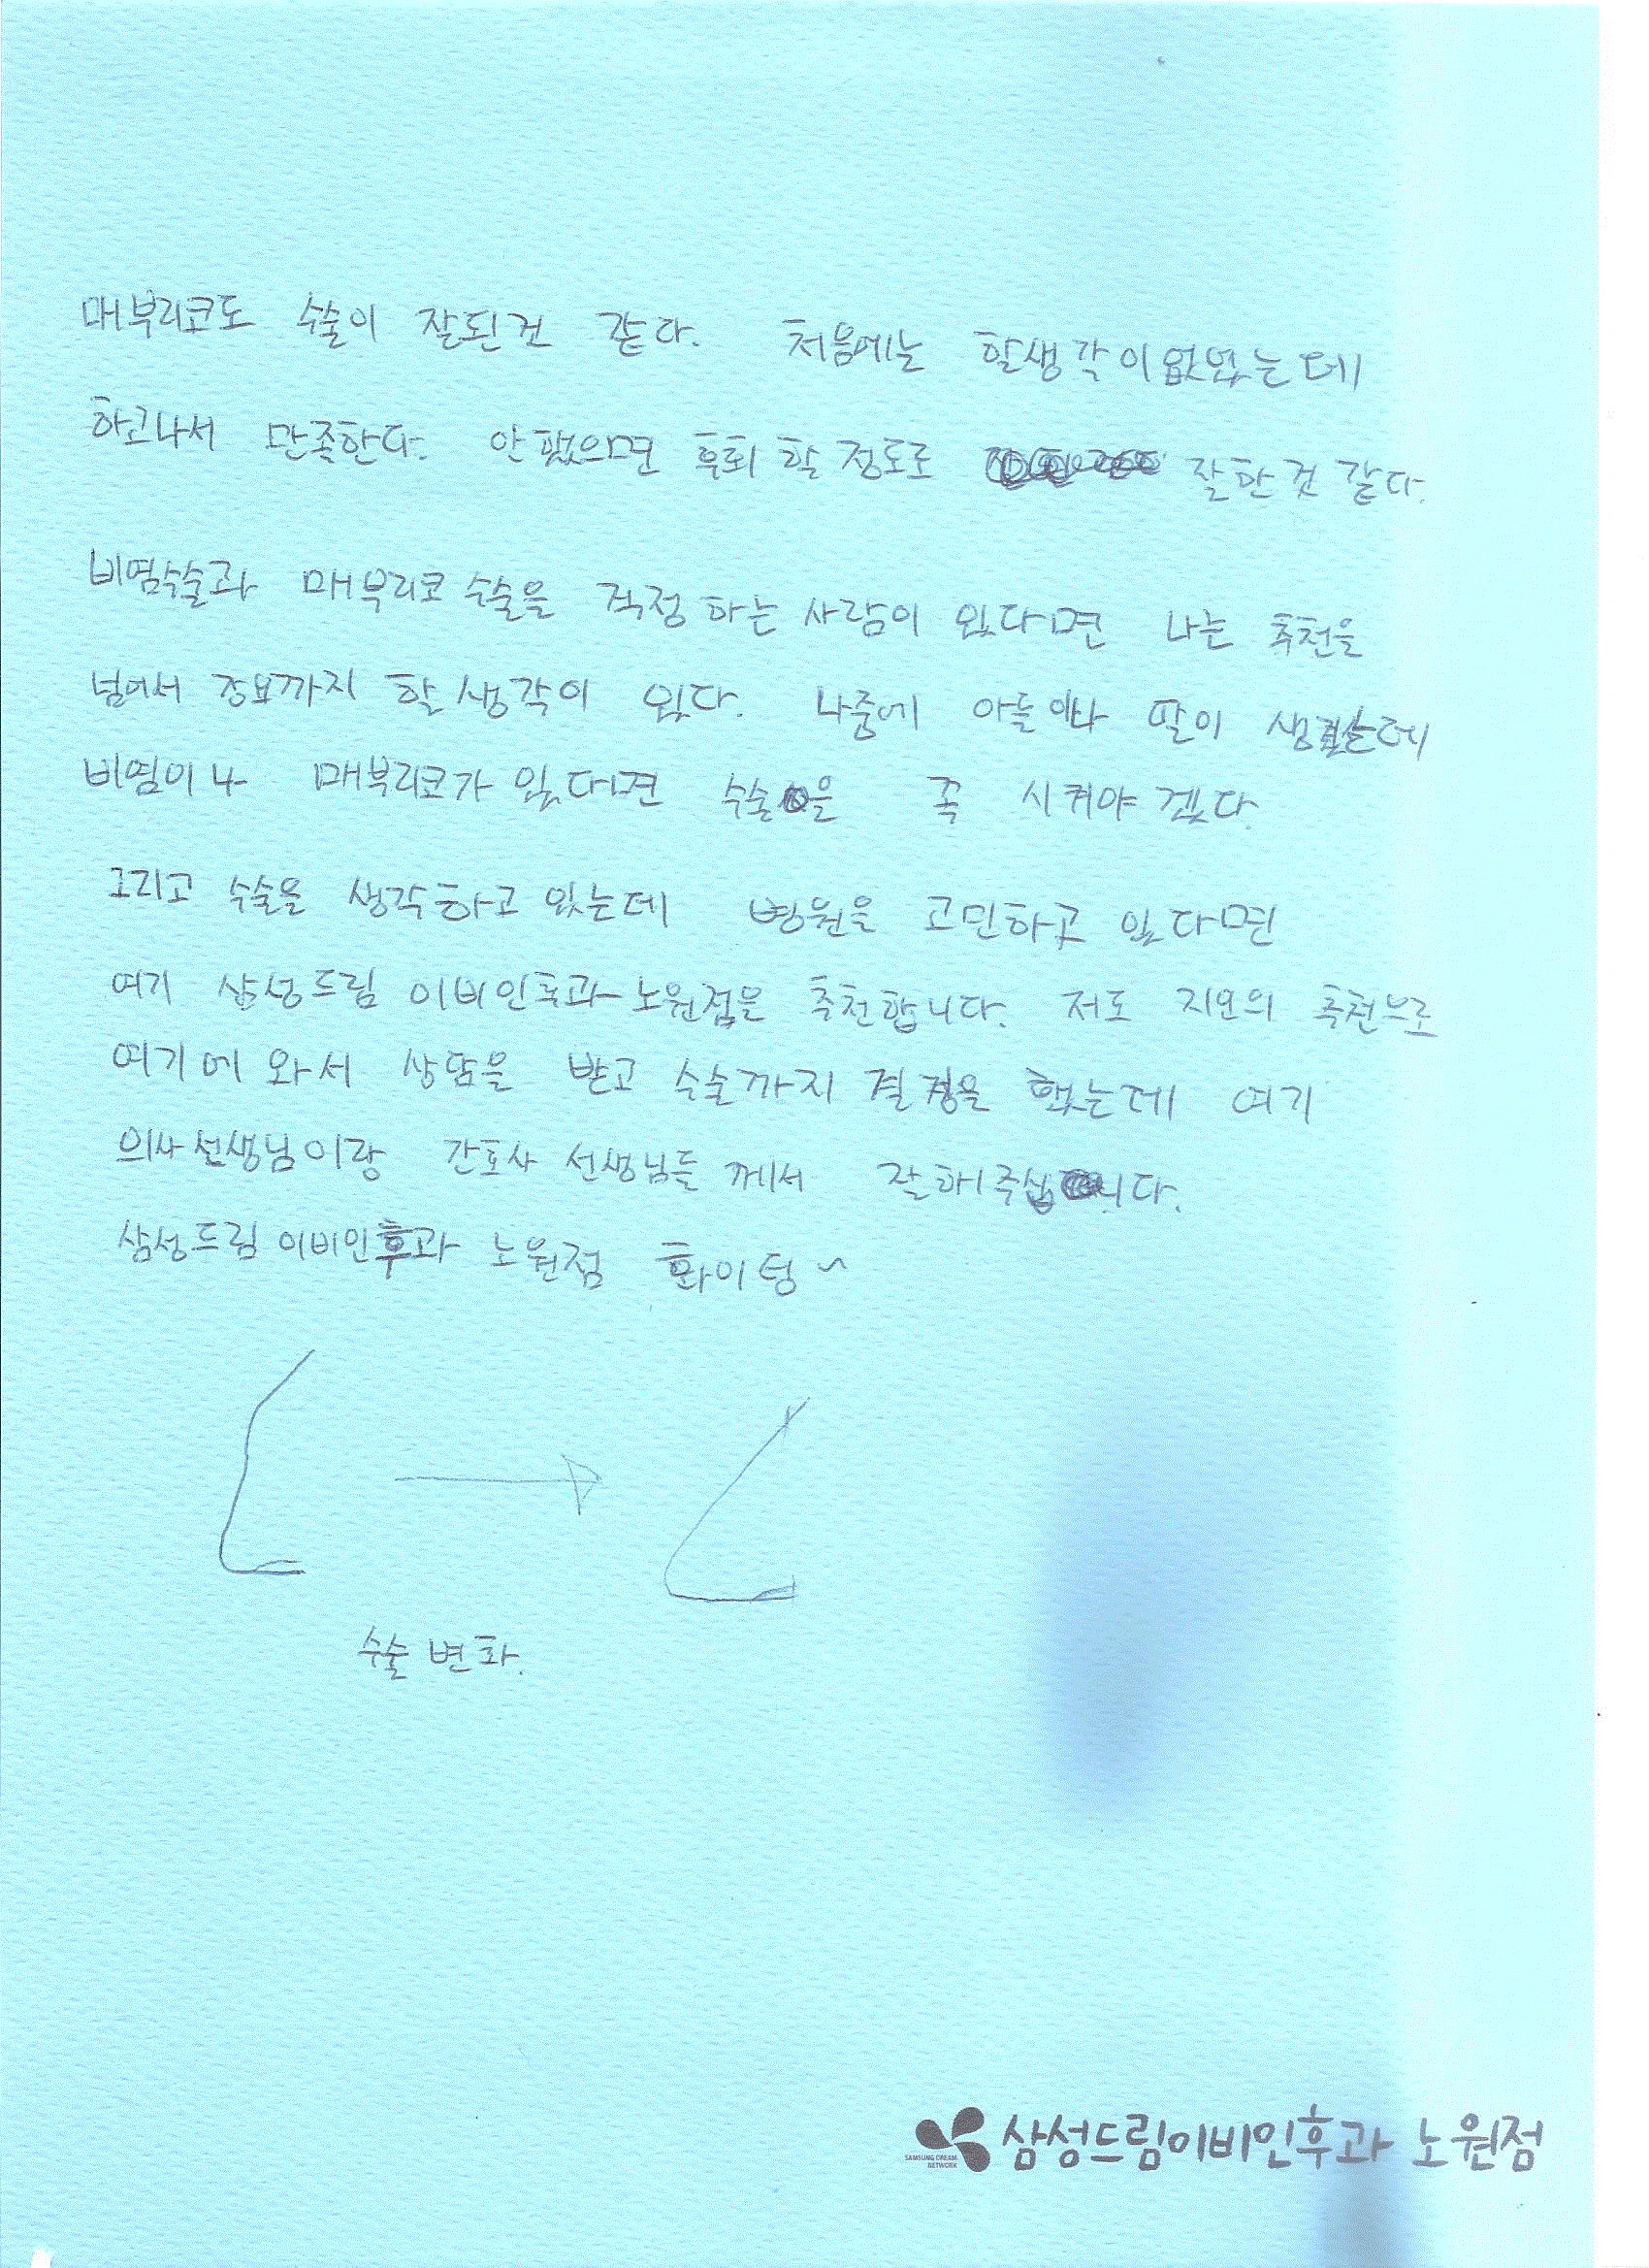 매부리코도 수술이 잘된건 같다. 처음에는 할생각이없었는데
하고나서 만족한다. 안했으면 후회 할 정도로 잘한것 같다.
비염수술과 매부리코 수술을 걱정 하는 사람이 있다면 나는 추천을
넘어서 강요까지 할 생각이 있다. 나중에 아들이나 딸이 생겼는데
비염이나 매부리코가 있다면 수술을 꼭 시켜야 겠다.
그리고 수술을 생각하고 있는데 병원을 고민하고 있다면
여기 삼성드림 이비인후과 노원점을 추천합니다. 저도 지인의 추천으로
여기에 와서 상담을 받고 수술까지 결정을 했는데 여기
의사선생님이랑 간호사 선생님들 께서 잘해주십니다.
삼성드림이비인후과 노원점 화이팅~
수술 변화.
삼성드림이비인후과 노원점
SAMSUNG DREAM
NETWORK